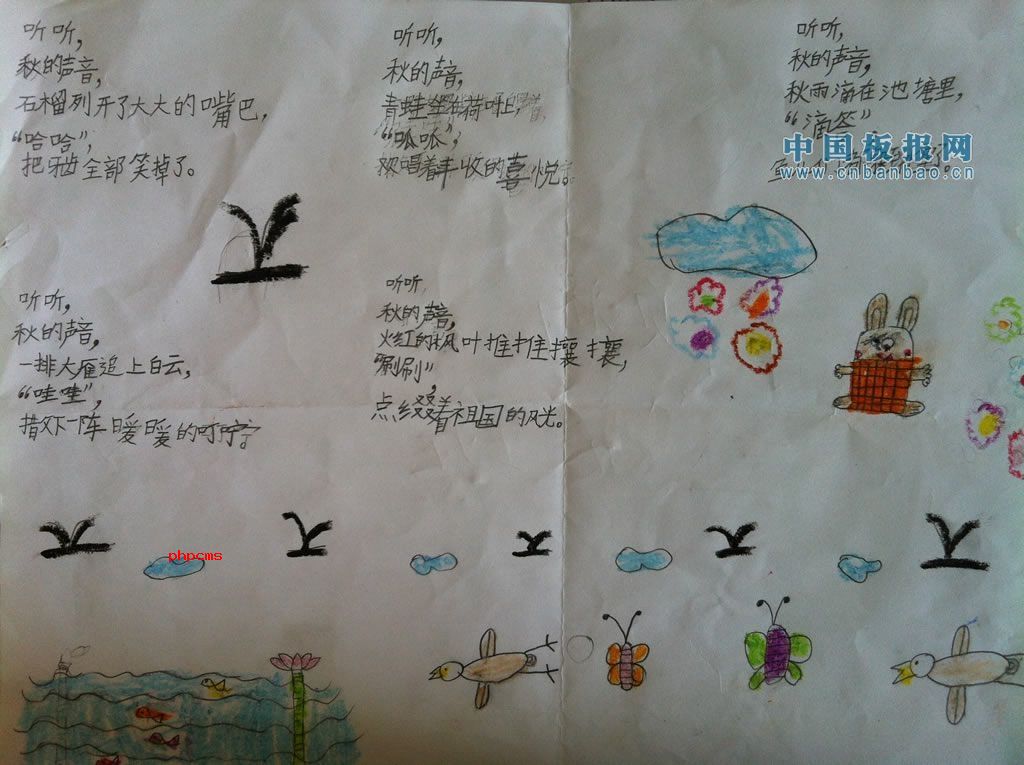 听听，
秋的声音，
石榴列开了大大的嘴巴，
“哈哈”，
把牙齿全部笑掉了。
听听，
秋的声音，
青蛙
“呱呱”，
歌唱着丰收的喜悦。
听听，
秋的声音，
秋雨滴在池塘里，
“滴答”，
中国板报网
www.cnbanbao.cn
听听，
秋的声音，
一排大雁追上白云，
“哇哇”，
撒下一阵暖暖的叮咛。
听听，
秋的声音，
火红的枫叶推推攘攘，
“唰唰”，
点缀着祖国的风光。
phpcms